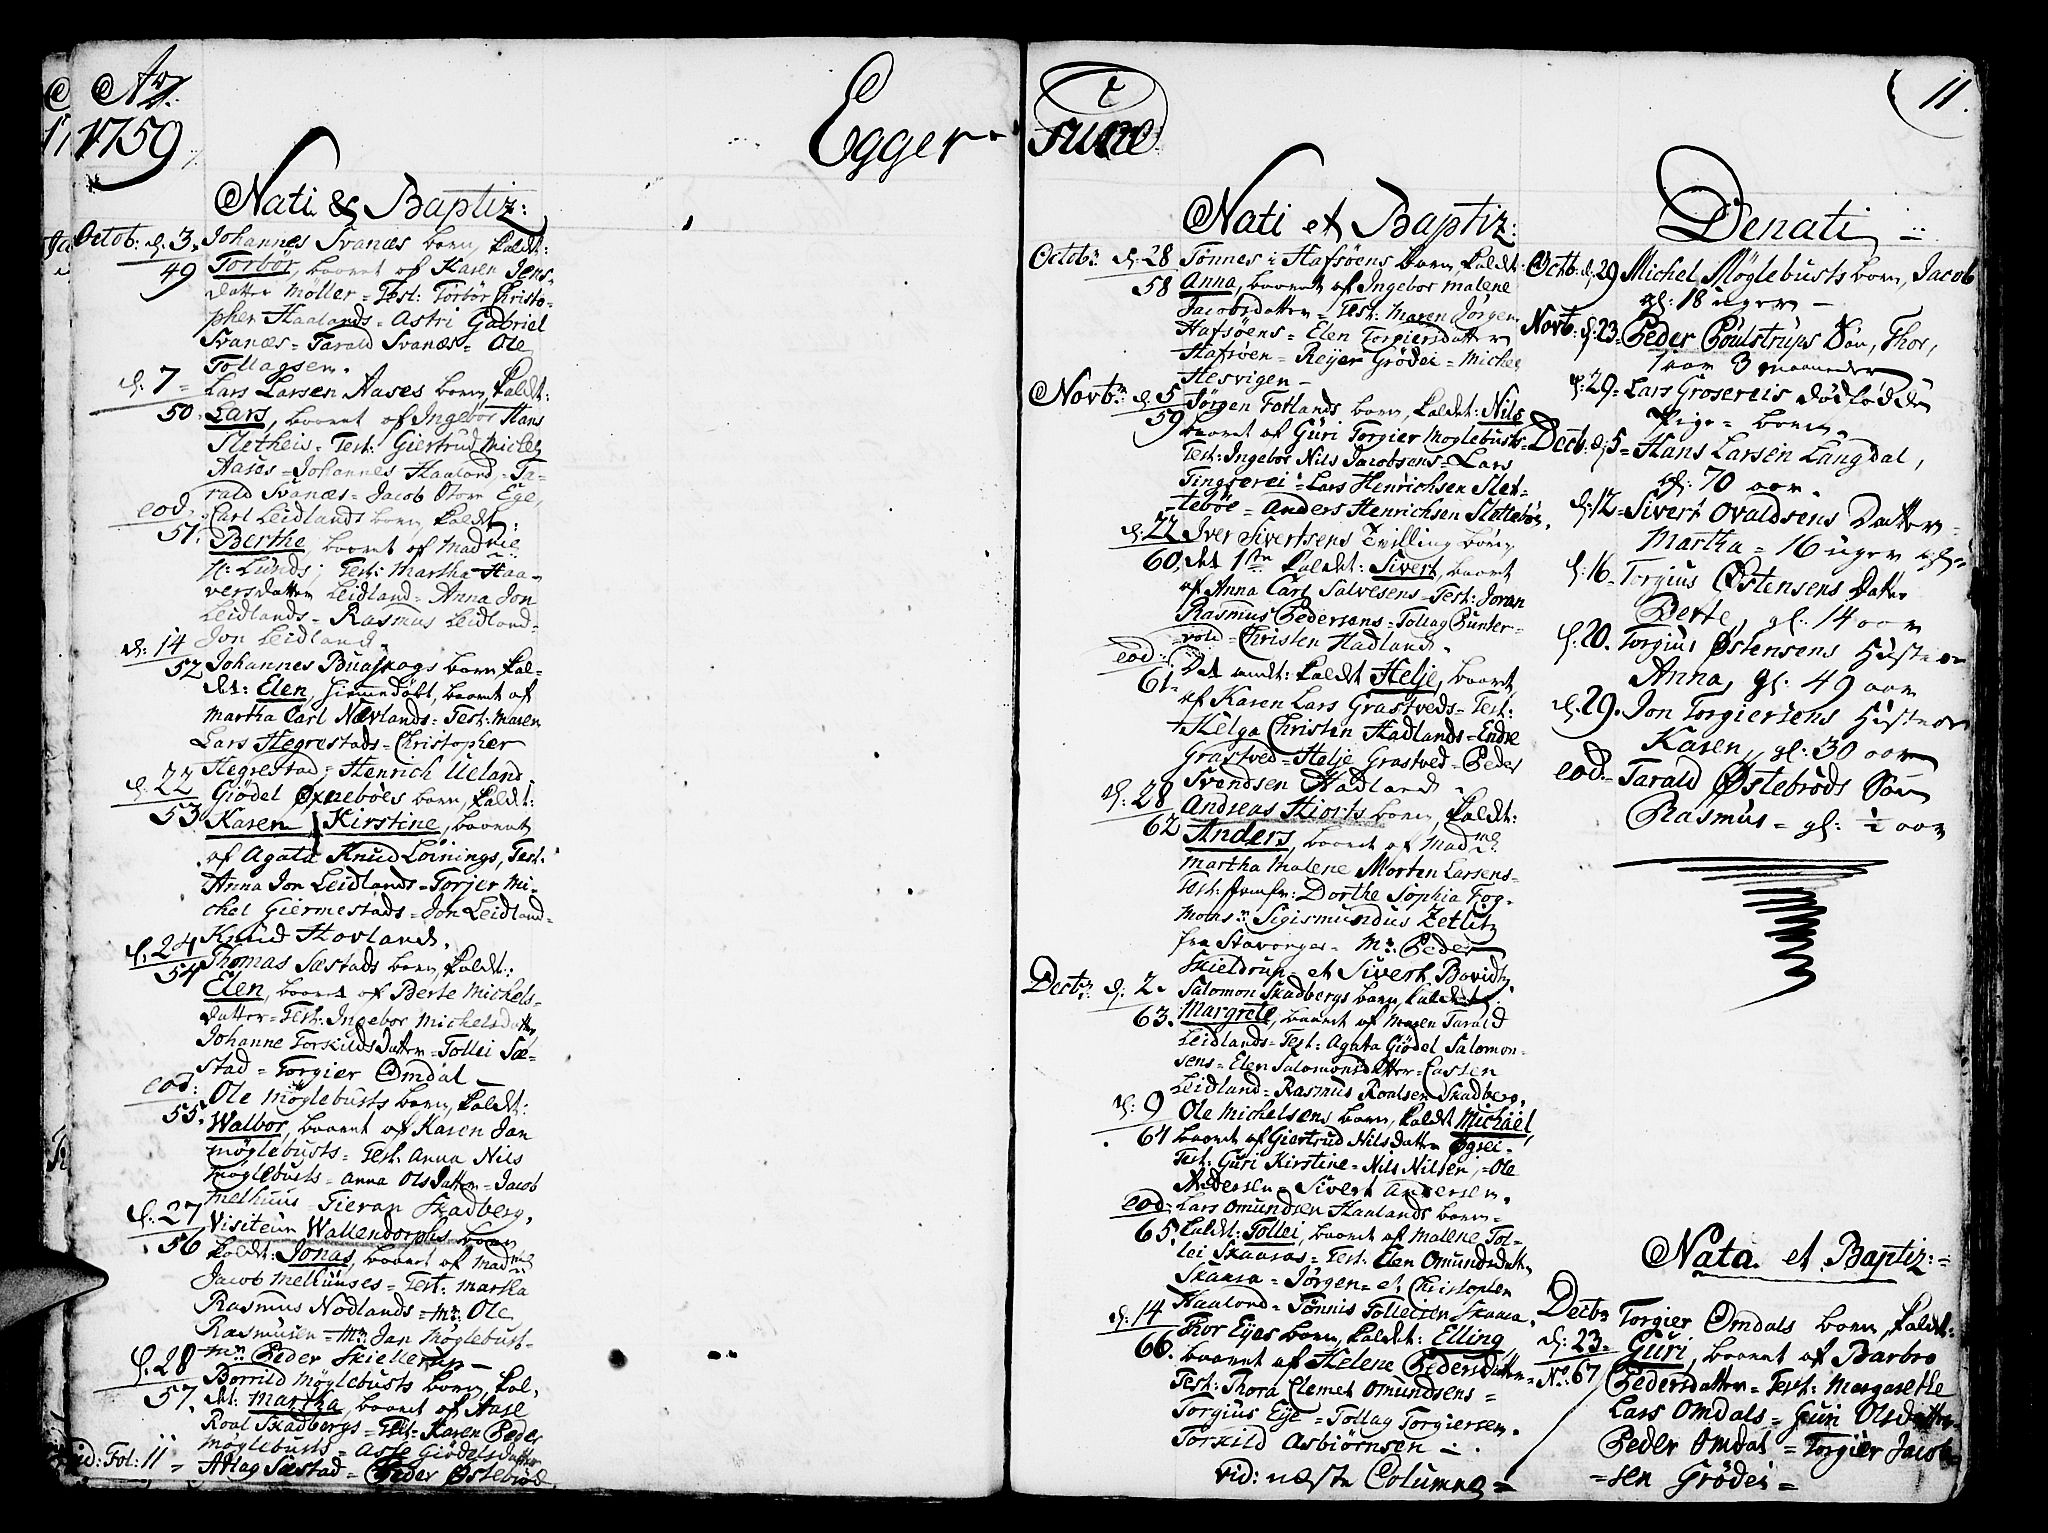 Ao
1759
Egger-
Nati & Baptiz:
Octob: d. 3. Johannes Svanæs barn, kaldt:
49 Torbør, baaret af Karen Jens-
datter Møller = Test: Torbør Christo-
pher Haalands = Astri Gabriel
Svanæs = Tarald Svanæs = Ole
Tollagsen.
d: 7 = Lars Larsen Aases barn, kaldt:
50. Lars, baaret af Ingebor Hans
Sletheis = Test: Giertrud Michel
Aases = Johannes Haaland = Ta-
rald Svanæs = Jacob Olsen Ege,
eod. Carl Leidlands barn, kaldt:
51. Berthe, baaret af Mad
N: Lunds; Test: Martha Haa-
versdatter Leidland = Anna Jon
Leidlands = Rasmus Leidland =
Jon Leidland.
d: 14
52 Johannes Buaskogs barn kal-
det: Elen, hiemedøbt, baaret af
Martha Carl Nævlands = Test: Maren
Lars Hegrestads = Christopher
Hegrestad = Henrich Ueland
d: 22 Giødel Øxnebøes barn, kaldt:
53 Karen Kirstine, baaret
af Agata Knud Løinings, Test:
Anna Jon Leidlands = Torjer Mi-
chel Giermestads = Jon Leidland =
Knud Hovland.
d. 24 Thomas Sæstads barn, kaldt:
54 Elen, baaret af Berte Michels-
datter = Test: Ingebor Michelsdatter,
Johanne Torkildsdatter = Tollei Sæ-
stad = Torgier Omdal
eod: Ole Møglebusts barn, kaldt:
55. Walbor, baaret af Karen Jan
Møglebusts = Test: Anna Nils
Møglebusts = Anna Olsdatter = Jacob
Melhuus = Tieran Skadberg.
d: 27 Visiteur Wallendorphs barn
56 kaldt: Jonas, baaret af Madme
Jacob Melhuuses = Test: Martha
Rasmus Nodlands = Mr: Ole
Rasmusen = Mr: Jan Møglebust =
Mr: Peder Skiellerup =
d. 28 Borrild Møglebusts barn, kal-
57. det: Martha, baaret af Aase
Roal Skadbergs = Test: Karen Peder
Møglebusts = Asse Giødelsdatter
vid: Fol: 11 = Atlag Sæstad = Peder Østebrød
11.
sund
Nati et Baptiz:
Octobr: d: 28 Tønnes i Hafsøens barn, kaldt:
58 Anna, baaret af Ingebor Malene
Jacobsdatter = Test: Maren Jørgen
Hafsøens = Elen Torgiersdatter
Hafsøen = Reijer Grødei = Michel
Hesvigen =
Novbr: d: 5 Jørgen Fotlands barn, kaldet: Nils
59 baaret af Guri Torgier Moglebusts =
Test: Ingebor Nils Jacobsens = Lars
Tingserei = Lars Henrichsen Slet-
tebøe = Anders Henrichsen Slettebøe,
d: 22 Iver Sivertsens Zwilling børn
60. det 1ste kaldet: Sivert, baaret
af Anna Carl Salvesens = Test: Joran
Rasmus Pedersens = Tollag Punter-
vold = Christen Hadland.
eod: Det andt: kaldt Helje, baaret
61. af Karen Lars Grastveds = Test:
Helga Christen Hadlands = Endre
Grastved = Helje Grastved = Peder
Svendsen Hadland
d: 28 Andreas Hiorts barn, kaldt:
62 Anders, baaret af Madme
Martha Malene Morten Larsens =
Test: Jomfr: Dorthe Sophia Fog =
Mons: Sigismundus Zetlitz
fra Stavanger = Mr: Peder
Skieldrup = et Sivert Bovidtz,
Decbr: d: 2. Salomon Skadbergs barn, kaldet
63. Margrete, baaret af Maren Tarald
Leidlands = Test: Agata Giødel Salomon-
sens = Elen Salomonsdatter = Casten
Leidland = Rasmus Roalsen Skadberg.
d: 9 Ole Michelsens barn, kaldt Michael,
64 baaret af Giertrud Nilsdatter Egrei =
Test: Guri Kirstine = Nils Nilsen = Ole
Andersen = Sivert Andersen.
eod: Lars Omundsen Haalands barn =
65. kaldt: Tollei, baaret af Malene Tol-
lei Skaaras = Test: Elen Omundsdatter
Skaara = Jørgen = et Christopher
Haaland = Tønnis Tolleisen Skaara.
d: 14 Thor Eyes barn, kaldet: Elling
66. baaret af Helene Pedersdatter =
Test: Thora Clemet Omundsens =
Torgius Eye = Tollag Torgiersen.
Torkild Asbiørnsen =
vid: næste Columne =
Denati =
Octb: d. 29 Michel Møglebusts barn, Jacob
gl: 18 uger =
Novb: d: 23 = Peder Poulstrups Søn, Thor,
1 aar 3 maaneder
d: 29 = Lars Grosereis dødfødde
Pige = barn.
Decb: d: 5 = Hans Larsen Langdal,
gl: 70 aar.
d: 12 = Sivert Ovaldsens Datter
Martha = 16 uger gl =
d: 16 = Torgius Østensens Datter
Berte, gl: 14 aar
d: 20. Torgius Østensens Hustroe
Anna, gl: 49 aar
d. 29. Jon Torgiersens Hustroe
Karen, gl: 30 aar
eod. = Tarald Østebrøds Søn
Rasmus = gl: ½ aar
Nata et Baptiz:
Decbr Torgier Omdals barn, kaldt:
d: 23 = Guri, baaret af Barbro
No: 67 Pedersdatter = Test: Margarethe
Lars Omdals = Guri Olsdatter =
Peder Omdal = Torgier Jacob-
sen Grødei =